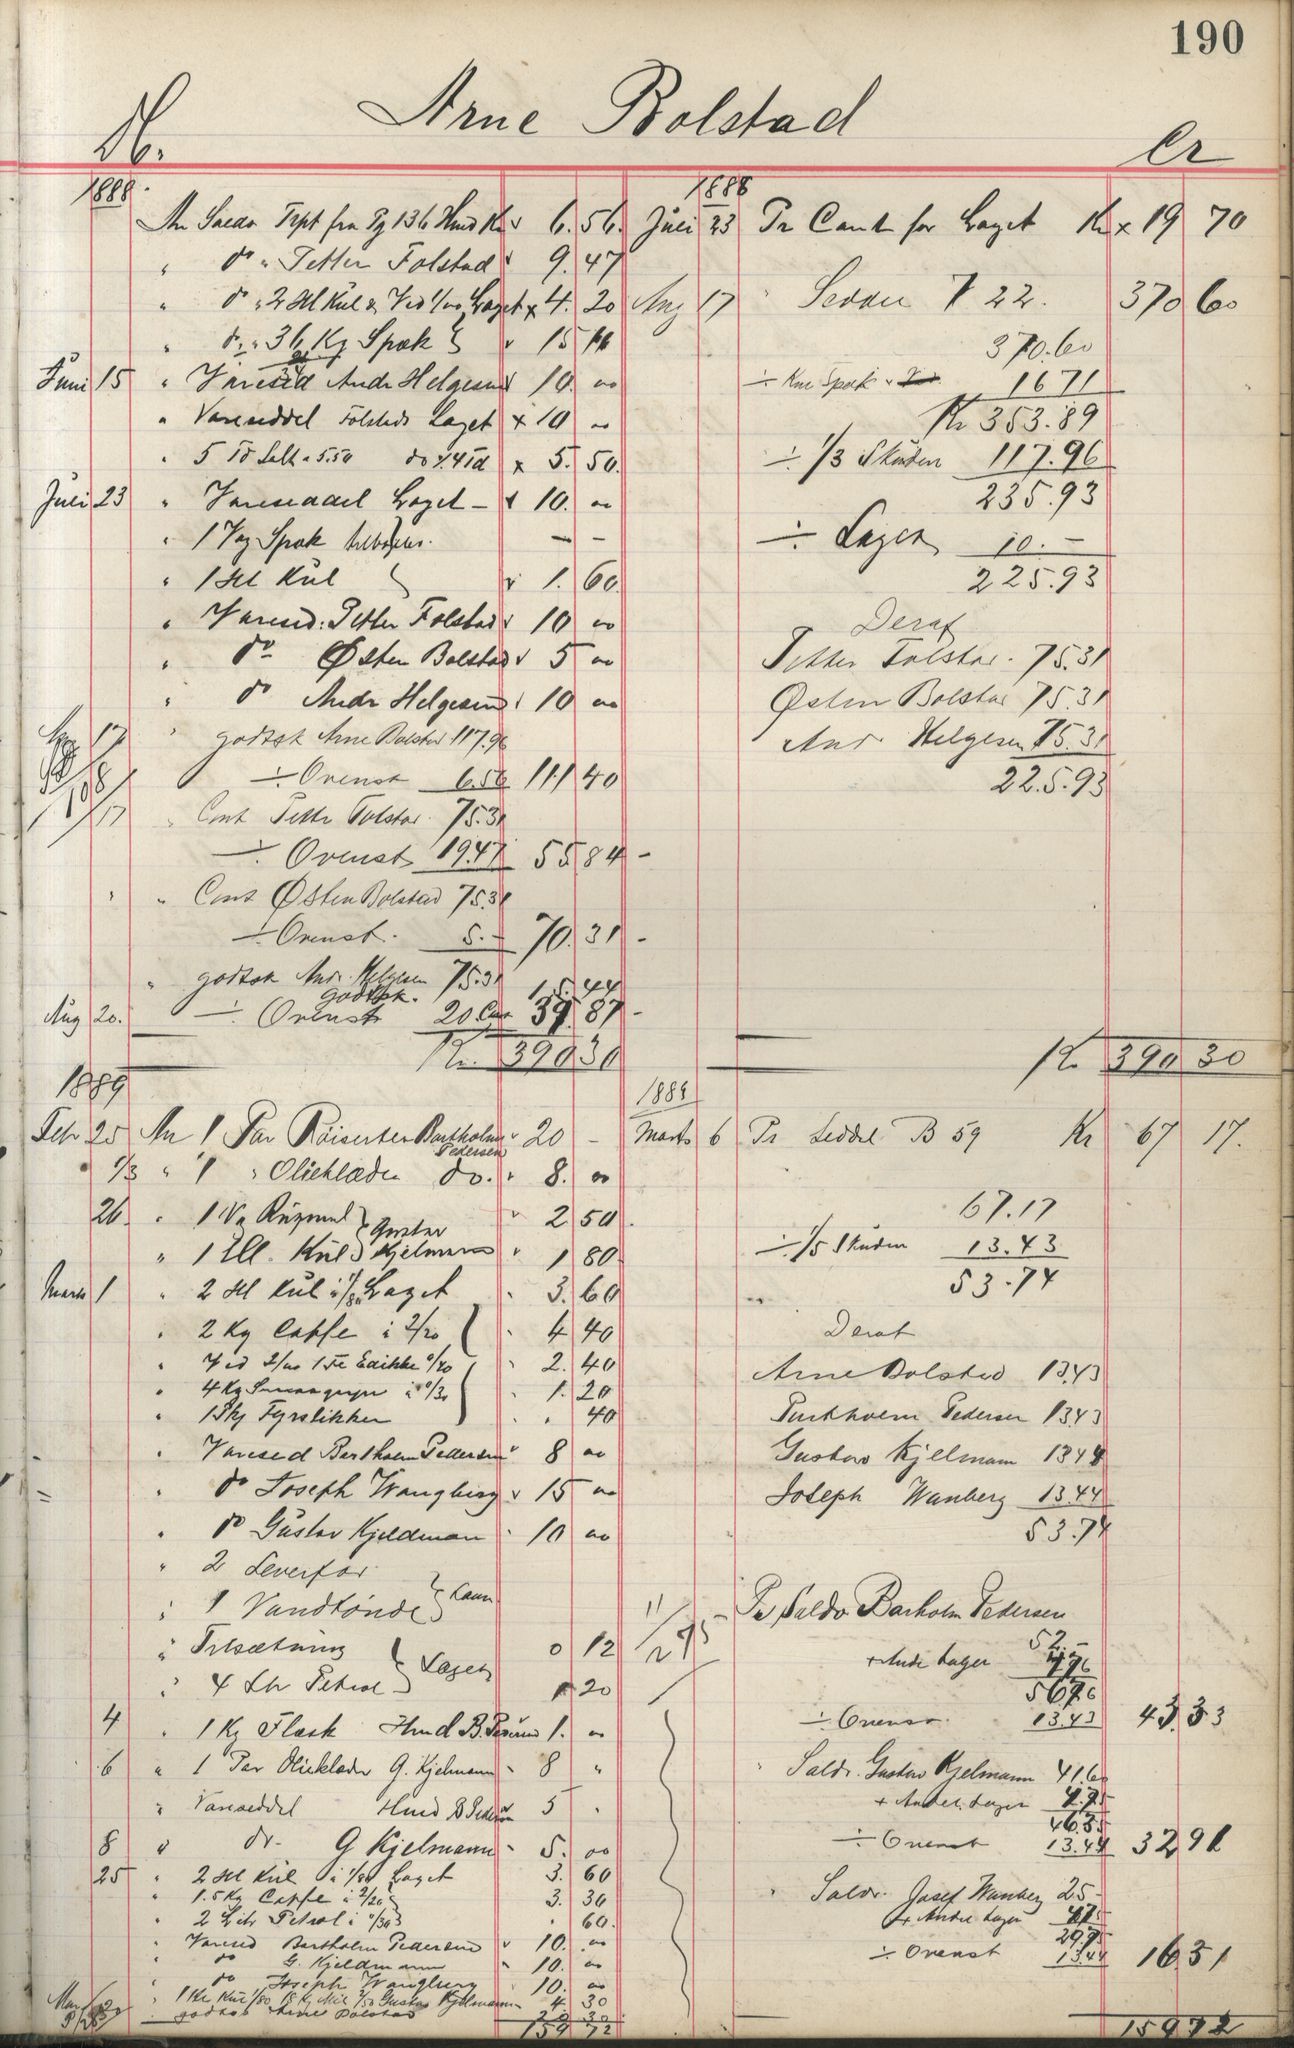 190
Arne Bolstad
Cr
1888
An Saldo Trpt fra Pg 136 Hmd Kr 6.56.
" do " Petter Folstad 9.47
" do " 2 Hl Kul & Ved Laget x 4.20
" do " 36 Kg Spæk 15
Juni 15 " Varesed Andr Helgesen 10.00
" Vareseddel Folstads Laget x 10 00
" 5 Td Salt a 5.50 do x 5.50.
Juli 23 " Vareseddel Laget - 10.00
" 1 Vog Spæk - -
" 1 Hl Kul 1.60
" Varesed: Petter Folstad 10 00
" do Østen Bolstad 5 00
" do Andr Helgesen 10 00
Aug 17 " godtsk Arne Bolstad 117.96
÷ Ovenst 6.56 111 40
17 " Cont Petter Folstad 75.31
÷ Ovenst 19.47 55 84 -
" " Cont Østen Bolstad 75.31
÷ Ovenst. 5.- 70.31 -
" godtsk Andr. Helgesen 75.31
godtsk. 15.44
Aug 20. ÷ Ovenst 20 Cont 39.87 -
Kr. 390 30
1888
Juli 23 Pr Cont for Laget Kr x 19 70
Aug 17 " Seddel 7 22. 370 60
370.60
÷ Spæk 16 71
Kr 353.89
÷ 1/3 Skuden 117.96
235.93
÷ Lagen 10.-
225.93
Deraf
Petter Folstad. 75.31
Østen Bolstad 75.31
And. Helgesen 75.31
225.93
Kr 390 30
1889
Febr 25 An 1 Par Bartholm Pedersen 20 -
1/3 " 1 " Olieklæder do. 8.00
26. " 1 Vg Rugmel 2 50
" 1 Hl. Kul Gustav Kjelmann 1 80
Marts 1 " 2 Hl Kul a 1/80 Laget 3.60
" 2 Kg Caffe a 2/20 4 40
" Ved 2/00 1 Fl Edikke 0/40 2.40
" 4 Kg a 0/30 1.20
" 1 Pk Fyrstikker . 40
" Varesed Bartholm Pedersen 8 00
" do Joseph Wangberg 15 00
" do Gustav Kjeldman 10 00
" 2 Leverfad
" 1 Vandtønde Laan
" Tilsætning 0 12
" 4 Ltr Petrol Lagen 1 20
4 " 1 Kg Flæsk Hmd B. Pedersen 1.00
6 " 1 Par Olieklæder G. Kjelmann 8 "
" Vareseddel Hmd B Pedersen 5 "
8 " do - G Kjelmann 5.00
25 " 2 Hl Kul a 1/80 Laget 3.60
" 1.5 Kg Caffe a 2/20 3.30
" 2 Litr Petrol a 0/30 . 60.
" Varesed Bartholm Pedersen 10.00
" do G. Kjeldmann 10.00
" do Joseph Wangberg 10.00
" 1 Hl Kul 1/80 Gustav Kjelmann 4 30
" godtsk Arne Bolstad
159 72
1889
Marts 6 Pr Seddel B 59 Kr 67 17.
67.17
÷ 1/5 Skuden 13.43
53.74
Deraf
Arne Bolstad 13.43
Bartholm Pedersen 13.43
Gustav Kjelmann 13.44
Joseph Wanberg 13.44
53.74
Pr Saldo Barholm Pedersen
52.-
+ Ande Lager 4.76
56.76
÷ Ovenst. 13.43 43.33
" Saldo. Gustav Kjelmann 41.60
+ Andel. Lagen 4.75
46.35
÷ Ovenst 13.44 32 91
" Saldo. Josef Wanberg 25 -
+ Andel Lagen 4.75
29.75
÷ Ovenst 13.44 16 31
159 72